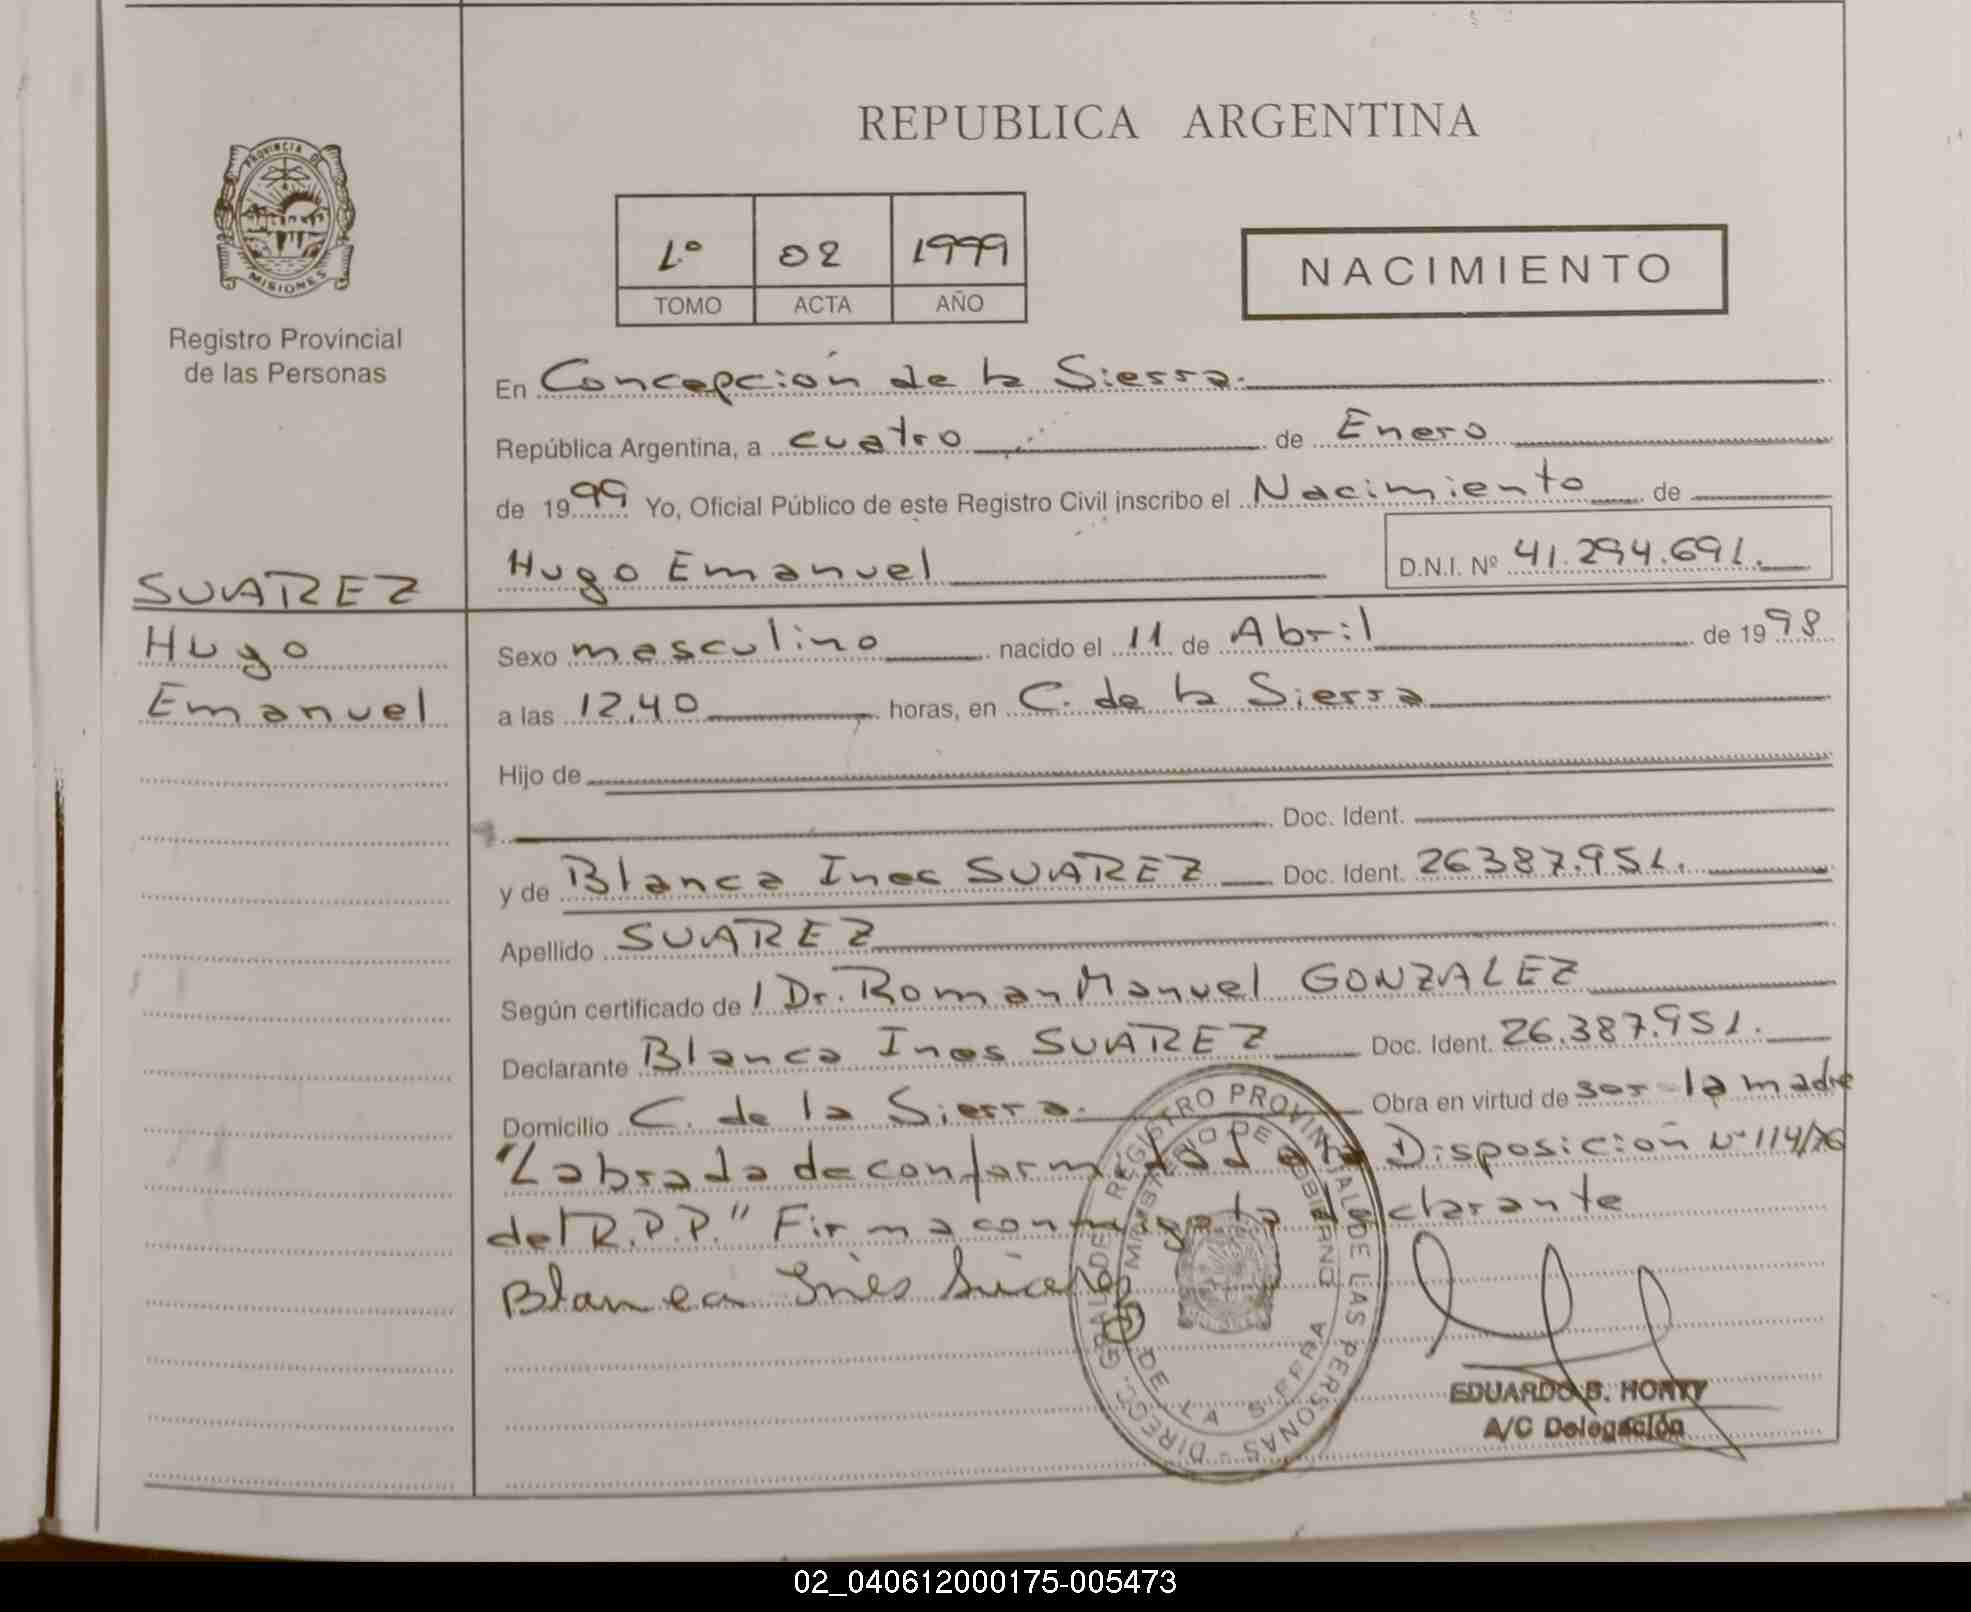 REPUBLICA ARGENTINA
PROVINCIA DE
MISIONES
Registro Provincial
de las Personas
1º 02 1999
TOMO ACTA AÑO
NACIMIENTO
En Concepción de la Sierra.
República Argentina, a cuatro de Enero
de 1999 Yo, Oficial Público de este Registro Civil inscribo el Nacimiento de
Hugo Emanuel D.N.I. Nº 41.294.691.
SUAREZ
Hugo
Emanuel
Sexo masculino nacido el 11 de Abril de 1998
a las 12,40 horas, en C. de la Sierra
Hijo de
Doc. Ident.
y de Blanca Ines SUAREZ Doc. Ident. 26387.951.
Apellido SUAREZ
Según certificado de / Dr. Roman Manuel GONZALEZ
Declarante Blanca Ines SUAREZ Doc. Ident. 26.387.951.
Domicilio C. de la Sierra. Obra en virtud de ser la madre
"Labrada de conformidad a la Disposición Nº 114/76
del R.P.P." Firma conmigo la declarante
Blanca Inés Suarez
DIRECC. GRAL. DEL REGISTRO PROVINCIAL DE LAS PERSONAS -
MINISTERIO DE GOBIERNO
DE LA SIERRA
EDUARDO S. HORTY
A/C Delegación
02_040612000175-005473